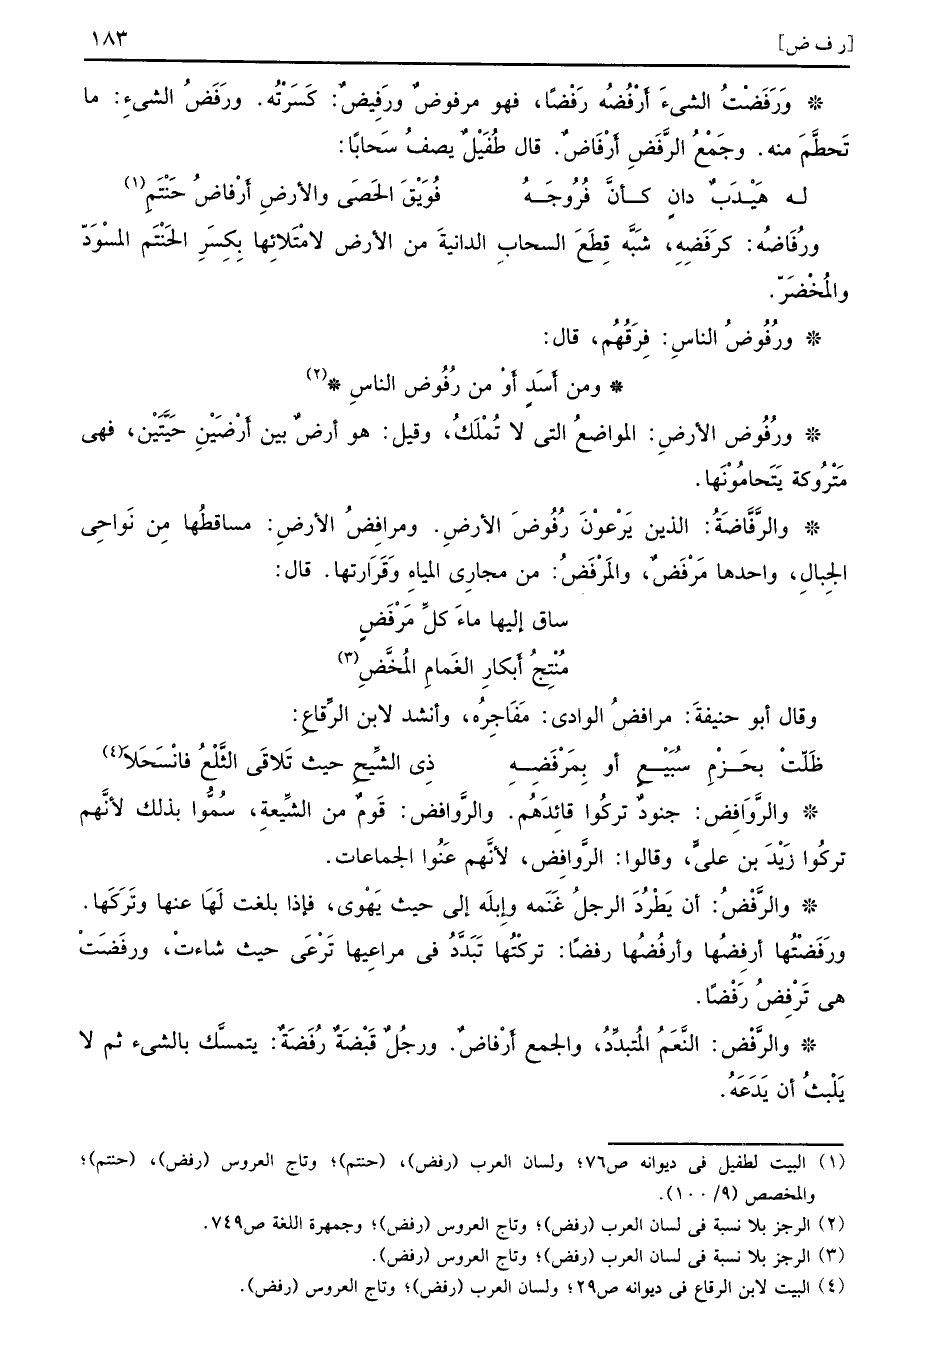 [ر ف ض] ١٨٣
* وَرَفَضْتُ الشىءَ أَرْفُضُه رَفْضًا، فهو مرفوضٌ ورَفِيضٌ: كَسَرْتُه. ورَفَضُ الشىءِ: ما
تَحطَّمَ منه. وجَمْعُ الرَّفَضِ أَرْفَاضٌ. قال طُفَيْلٌ يصفُ سَحابًا:
له هَيْدَبٌ دانٍ كـأنَّ فُرُوجَـهُ فُوَيْقَ الحَصَى والأرضِ أرْفاضُ حَنْتَمِ(١)
ورُفَاضُه: كرَفَضِهِ، شبَّه قِطَعَ السحابِ الدانيةَ من الأرض لامْتِلائها بِكِسَرِ الحَنْتَم المسْوَدّ
والمُخْضَرّ.
* ورُفُوضُ الناسِ: فِرَقُهُم، قال:
* ومن أَسَدٍ أوْ من رُفُوض الناسِ *(٢)
* ورُفُوض الأرضِ: المواضعُ التى لا تُمْلَكُ، وقيل: هو أرضٌ بين أَرْضَيْنِ حَيَّتَيْن، فهى
مَتْرُوكة يَتَحامُوْنَها.
* والرَّفَّاضَةُ: الذين يَرْعوْنَ رُفُوضَ الأرضِ. ومرافِضُ الأرضِ: مساقطُها مِن نَواحِى
الجِبالِ، واحدها مَرْفَضٌ، والمَرْفَضُ: من مجارِى المياهِ وقَرَارتها. قال:
ساق إليها ماءَ كلِّ مَرْفَضٍ
مُنْتِجُ أبكارِ الغَمامِ المُخَّضِ(٣)
وقال أبو حنيفةَ: مرافضُ الوادى: مَفَاجِرُه، وأنشد لابن الرِّقاعِ:
ظَلّتْ بحَـزْمِ سُبَيْـعٍ أو بِمَرْفَضِـهِ ذِى الشِّيحِ حيث تَلاقَى التَّلْعُ فانْسَحَلاَ(٤)
* والرَّوَافِض: جنودٌ تركُوا قائدَهُم. والرَّوافض: قَومٌ من الشِّيعةِ، سُمُّوا بذلك لأنَّهم
تركُوا زَيْدَ بن علىٍّ، وقالوا: الرَّوافِض، لأنَّهم عَنُوا الجماعات.
* والرَّفْضُ: أن يَطْرُدَ الرجلُ غَنَمه وإبلَه إلى حيث يَهْوى، فإذا بلغت لَهَا عنها وتَرَكَها.
ورَفَضْتُها أرفِضُها وأرفُضُها رفضًا: تركتُها تَبَدَّدُ فى مراعِيها تَرْعَى حيث شاءتْ، ورفَضَتْ
هى تَرْفِضُ رَفْضًا.
* والرَّفْض: النَّعَمُ المُتبدِّدُ، والجمع أَرْفاضٌ. ورجُلٌ قَبْضَةٌ رُفَضَةٌ: يتمسَّك بالشىء ثم لا
يَلْبثُ أن يَدَعَهُ.
(١) البيت لطفيل فى ديوانه ص٧٦؛ ولسان العرب (رفض)، (حنتم)؛ وتاج العروس (رفض)، (حنتم)؛
والمخصص (٩/ ١٠٠).
(٢) الرجز بلا نسبة فى لسان العرب (رفض)؛ وتاج العروس (رفض)؛ وجمهرة اللغة ص٧٤٩.
(٣) الرجز بلا نسبة فى لسان العرب (رفض)؛ وتاج العروس (رفض).
(٤) البيت لابن الرقاع فى ديوانه ص٢٩؛ ولسان العرب (رفض)؛ وتاج العروس (رفض).